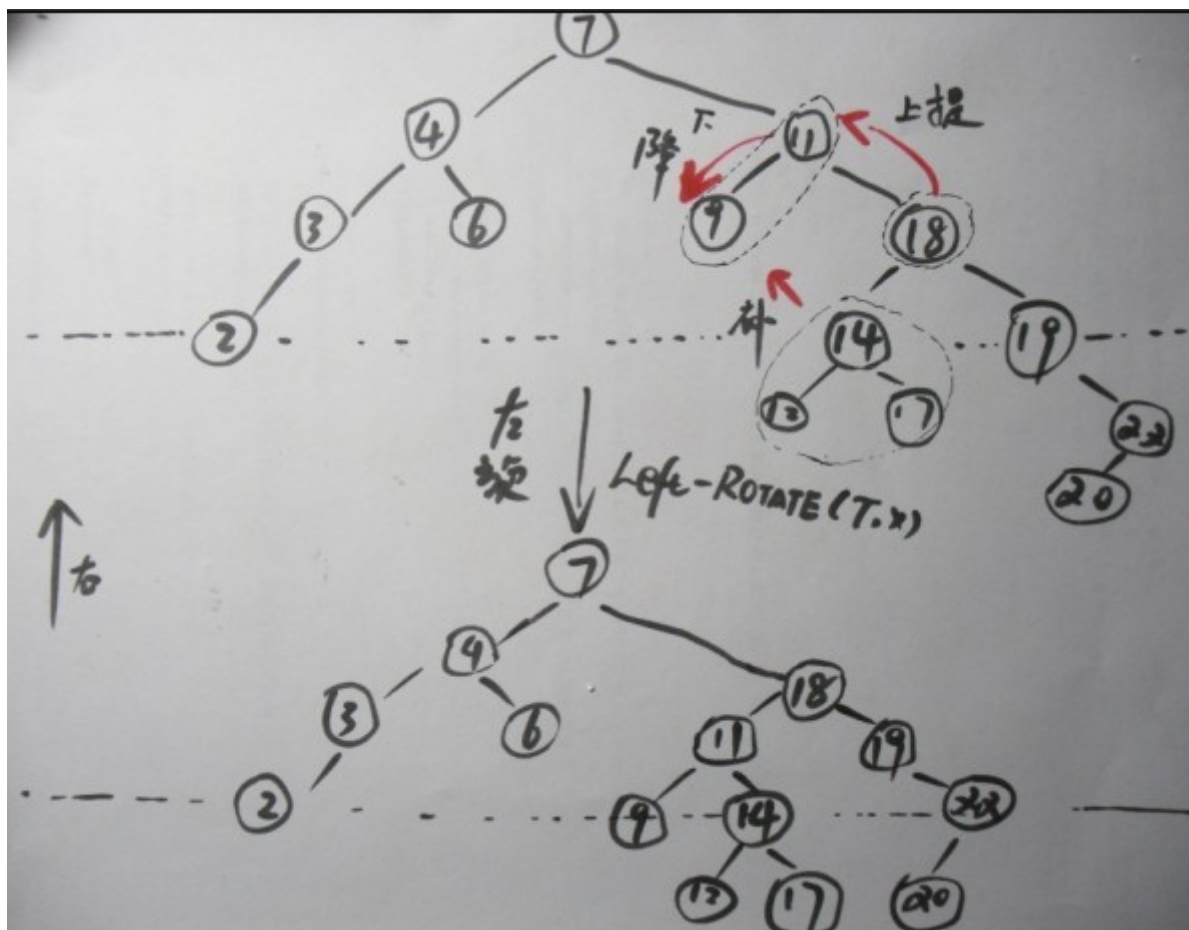 7
4
下降
11
上提
3
6
9
18
2
补
14
19
12
17
22
20
左旋
Left-ROTATE(T.x)
右
7
4
18
3
6
11
19
2
9
14
22
12
17
20